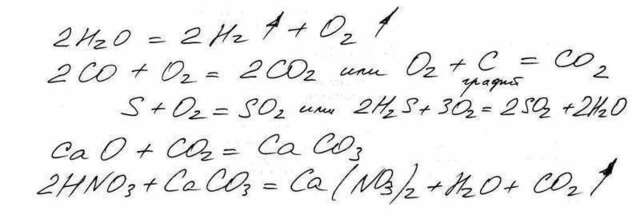 2H2O = 2H2↑ + O2↑
2CO + O2 = 2CO2 или O2 + C = CO2
S + O2 = SO2 или 2H2S + 3O2 = 2SO2 + 2H2O
CaO + CO2 = CaCO3
2HNO3 + CaCO3 = Ca(NO3)2 + H2O + CO2↑